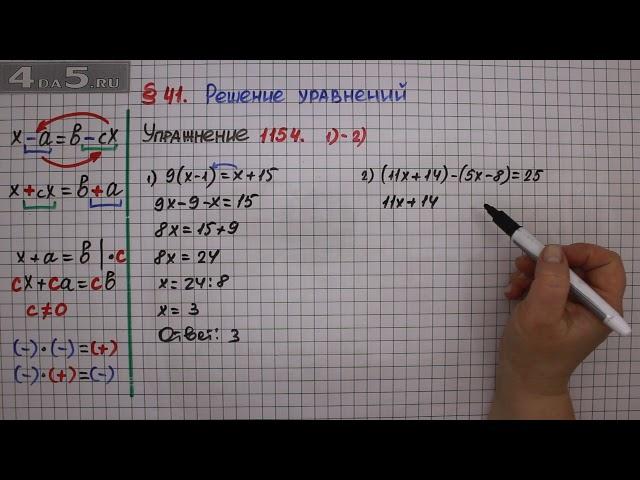 4DA5.RU
§ 41. Решение уравнений
Упражнение 1154. 1)-2)
x-a=b-cx
x+cx=b+a
x+a=b|·c
cx+ca=cb
c≠0
(-)·(-)=(+)
(-)·(+)=(-)
1) 9(x-1)=x+15
9x-9-x=15
8x=15+9
8x=24
x=24:8
x=3
Ответ: 3
2) (11x+14)-(5x-8)=25
11x+14